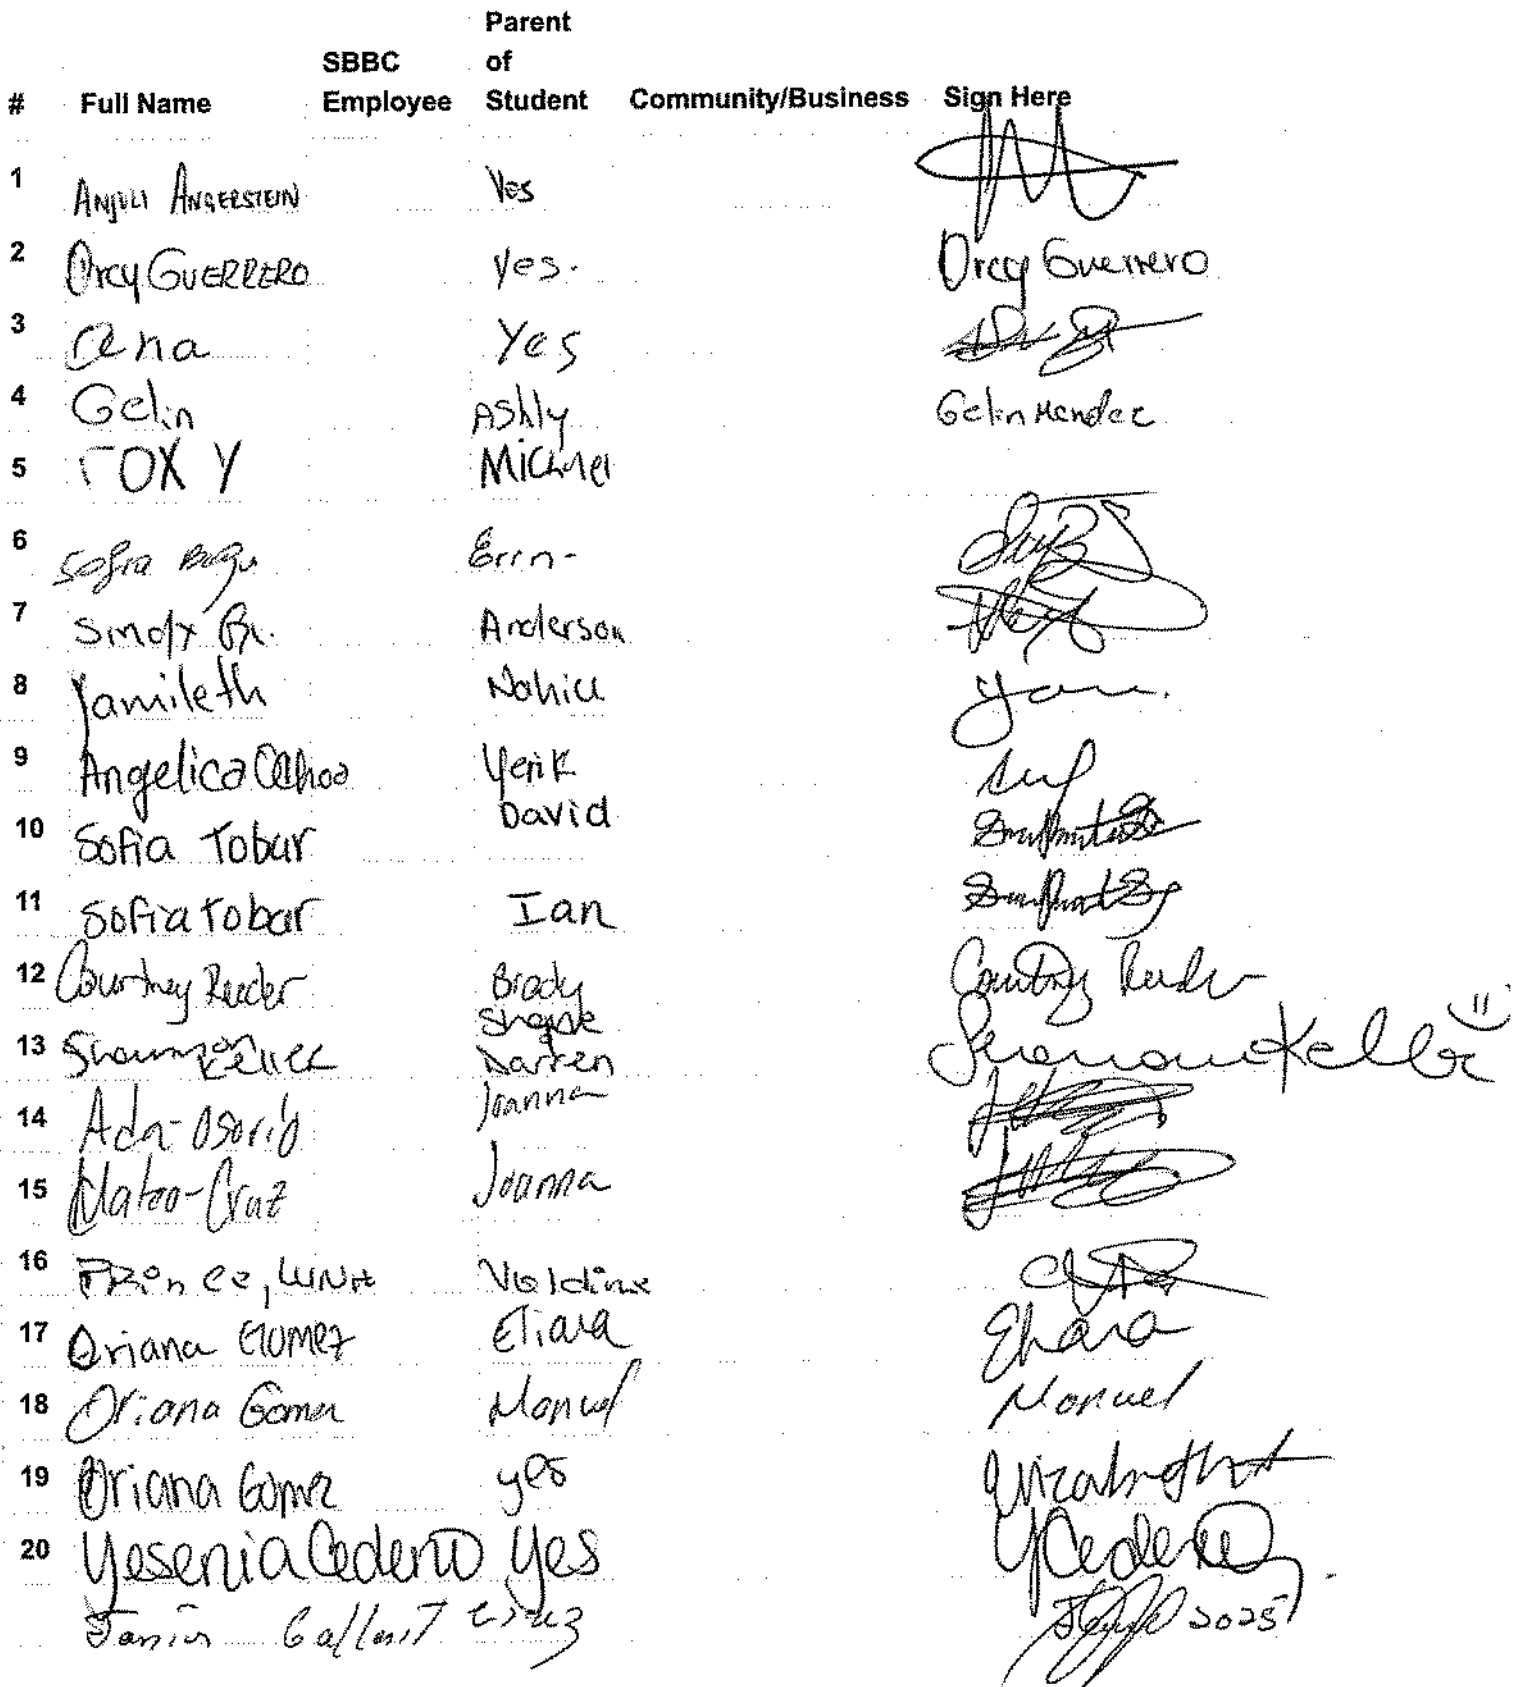 # Full Name SBBC Employee Parent of Student Community/Business Sign Here
1 ANJULI ANGERSTEIN Yes
2 Orcy GUERRERO yes. Orcy Guerrero
3 Yes
4 Gelin Ashly Gelin Mendez
5 FOXY Michael
6 Sofia Erin-
7 Anderson
8 Yamileth
9 Angelica Ochoa Yerik
10 Sofia Tobar David
11 Sofia Tobar Ian
12 Courtney Reeder Brady Courtney Reeder
Shane
13 Shannon Keller Darren Shannon Keller
14 Ada-Osorio Joanna
15 Mateo-Cruz Joanna
16 Valdine
17 Oriana Gomez Eliana
18 Oriana Gomez Manuel Manuel
19 Oriana Gomez yes
20 Yesenia Cedeno Yes YCedeno
2025